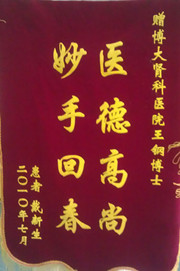 赠博大肾科医院王钢博士
医德高尚
妙手回春
患者 戴新生
二〇一〇年七月